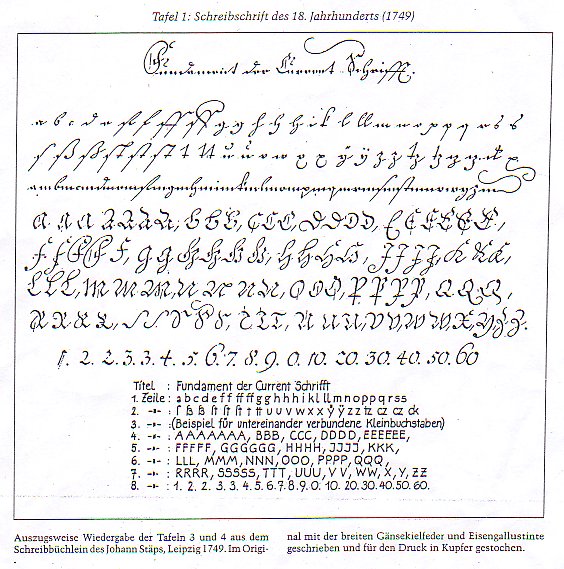 Tafel 1: Schreibschrift des 18. Jahrhunderts (1749)
Fundament der Current Schrifft.
a b c d e f f ff ff g g h h h i k l l l m n o p p q r s s
A A A A A A A, B B B, C C C, D D D D, E E E E E E,
F F F F F, G G G G G G, H H H H, J J J J, K K K,
L L L, M M M, N N N, O O O, P P P P, Q Q Q,
R R R R, S S S S S, T T T, U U U, V V, W W, X, Y, Z Z.
1. 2. 2. 3. 3. 4. 5. 6. 7. 8. 9. 0. 10. 20. 30. 40. 50. 60
Titel : Fundament der Current Schrifft
1. Zeile : a b c d e f f ff ff f g g h h h i k l ll m n o p p q r s s
2. -"- : ſ ß ß ſt ſt ſt t tt u u v w x x ÿ ÿ z z tz cz cz ck
3. -"- : (Beispiel für untereinander verbundene Kleinbuchstaben)
4. -"- : AAAAAAA, BBB, CCC, DDDD, EEEEEE,
5. -"- : FFFFF, GGGGGG, HHHH, JJJJ, KKK,
6. -"- : LLL, MMM, NNN, OOO, PPPP, QQQ,
7. -"- : RRRR, SSSSS, TTT, UUU, VV, WW, X, Y, ZZ
8. -"- : 1. 2. 2. 3. 3. 4. 5. 6. 7. 8. 9. 0. 10. 20. 30. 40. 50. 60.
Auszugsweise Wiedergabe der Tafeln 3 und 4 aus dem
Schreibbüchlein des Johann Stäps, Leipzig 1749. Im Origi-
nal mit der breiten Gänsekielfeder und Eisengallustinte
geschrieben und für den Druck in Kupfer gestochen.